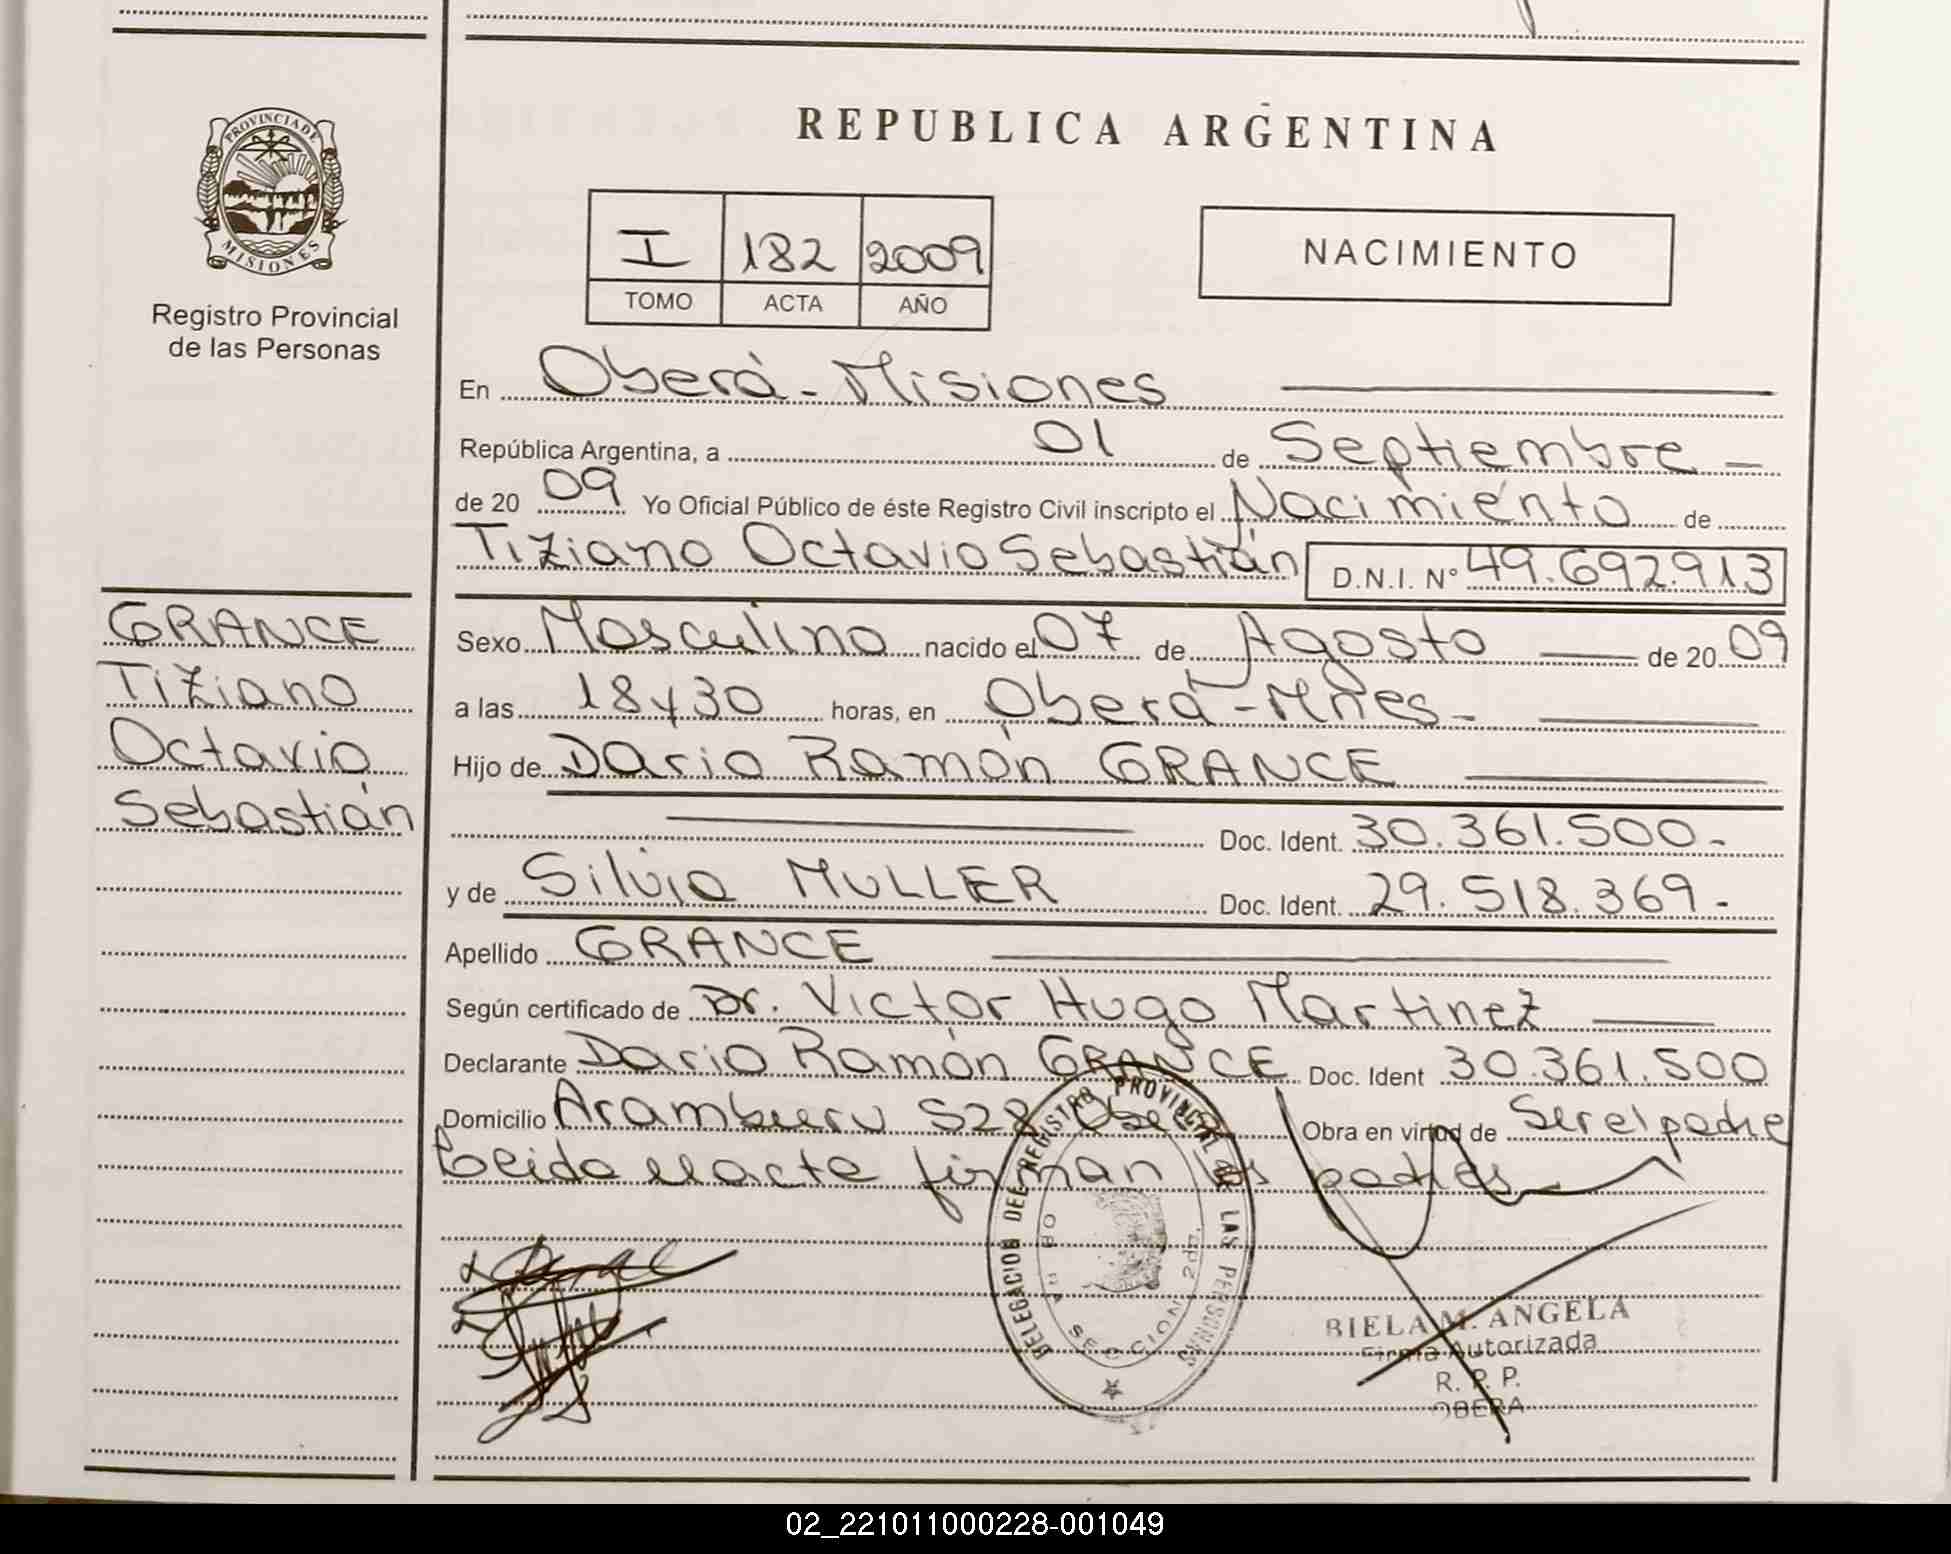 PROVINCIA DE
MISIONES
Registro Provincial
de las Personas
GRANCE
Tiziano
Octavio
Sebastián
REPUBLICA ARGENTINA
I 182 2009
TOMO ACTA AÑO
NACIMIENTO
En Oberá - Misiones
República Argentina, a 01 de Septiembre
de 20 09 Yo Oficial Público de éste Registro Civil inscripto el Nacimiento de
Tiziano Octavio Sebastián D.N.I. N° 49.692.913
Sexo Masculino nacido el 07 de Agosto de 20 09
a las 18 y 30 horas, en Oberá - Mnes -
Hijo de Dario Ramón GRANCE
Doc. Ident. 30.361.500 -
y de Silvia MULLER Doc. Ident. 29.518.369 -
Apellido GRANCE
Según certificado de Dr. Victor Hugo Martinez
Declarante Dario Ramón GRANCE Doc. Ident 30.361.500
Domicilio Aramburu 528 Oberá Obra en virtud de Ser el padre
Leida el acta firman los padres
DELEGACION DEL REGISTRO PROVINCIAL DE LAS PERSONAS
OBERA SECCION 2da.
BIELA M. ANGELA
Firma Autorizada
R. P. P.
OBERA
02_221011000228-001049